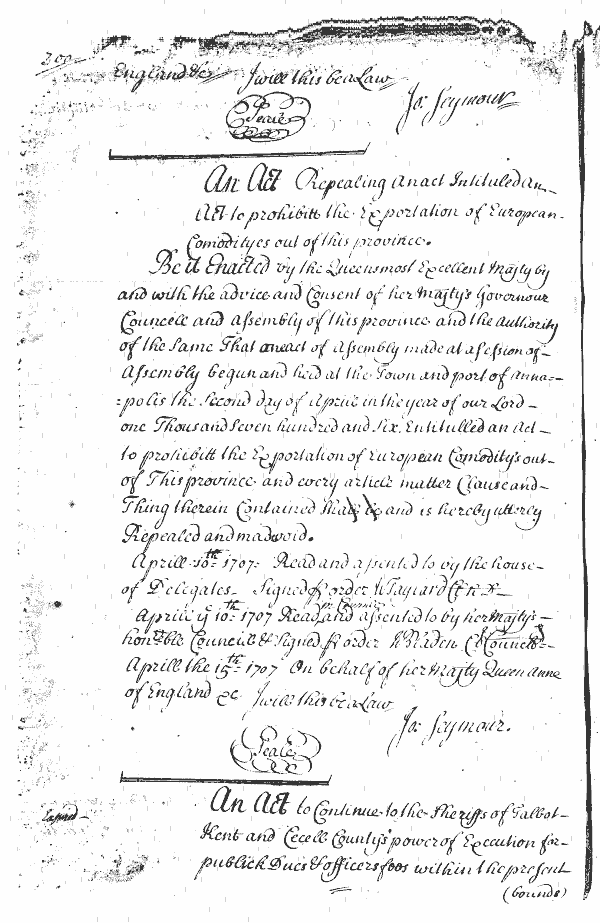 200
England &c I will this be a Law
Jo: Seymour
Seale
An Act Repealing an act Intituled An
Act to prohibitt the Exportation of European
Comodityes out of this province.
Be it Enacted by the Queens most Excellent Majty by
and with the advice and Consent of her Majtys Governour
Councele and Assembly of this province and the authority
of the Same That one act of Assembly made at a Session of
Assembly begun and held at the Town and port of Anna=
=polis the Second day of Aprill in the year of our Lord
one Thousand Seven hundred and Six Entitulled an Act
to prohibitt the Exportation of European Comoditys out
of This province and every article matter Clause and
Thing therein Contained Shall be and is hereby utterly
Repealed and madvoid.
Aprill 10th 1707 Read and assented to by the house
of Delegates Signed p order W Taylard Cl h d
Aprill ye 10th 1707 Read in Councill and assented to by her Majtys
honrble Councill & Signed p order W Bladen Cl Councl
Aprill the 15th 1707 On behalf of her Majty Queen Anne
of England &c I will this be a Law
Jo: Seymour.
Seale
An Act to Continue to the Sheriffs of Talbot
Expired
Kent and Cecell Countys power of Execution for
publick Dues & officers fees within the present
(bounds)